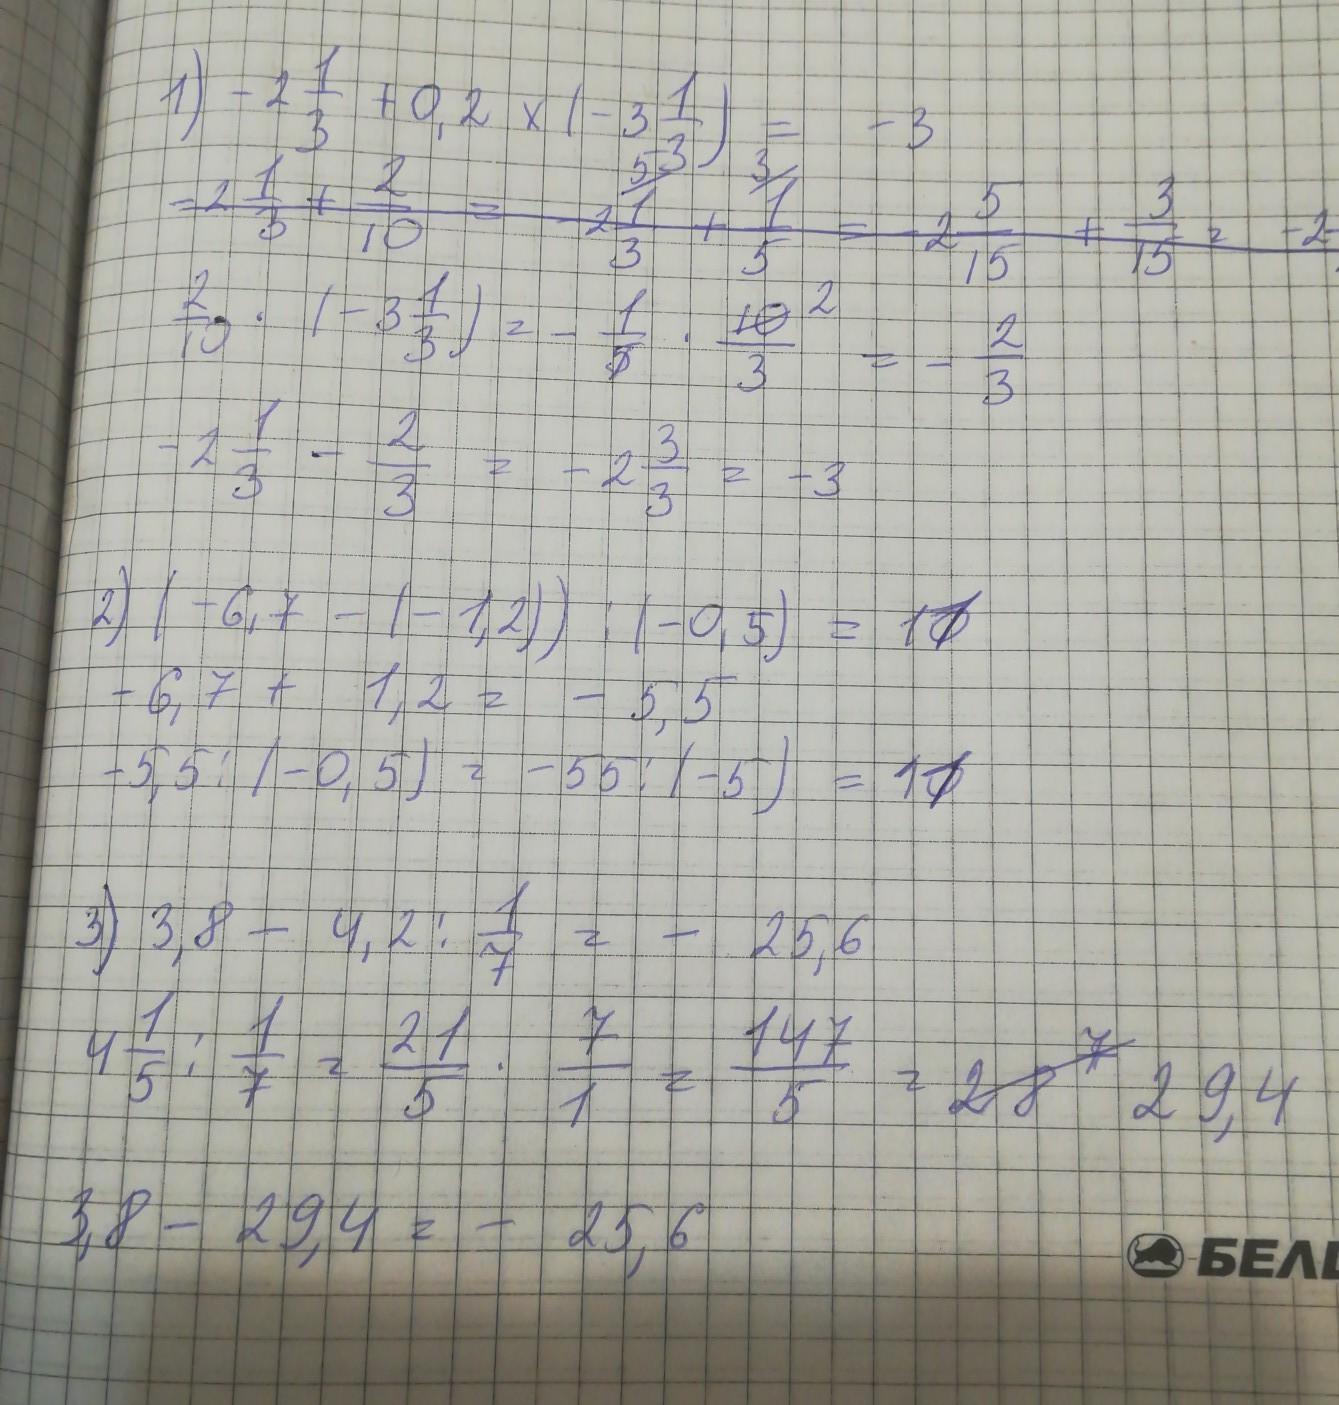 1) -2 1/3 + 0,2 × (-3 1/3) = -3
-2 1/3 + 2/10 = -2 1/3 + 1/5 = -2 5/15 + 3/15 = -2
2/10 · (-3 1/3) = - 1/5 · 10/3 2 = - 2/3
-2 1/3 - 2/3 = -2 3/3 = -3
2) (-6,7 - (-1,2)) : (-0,5) = 11
-6,7 + 1,2 = -5,5
-5,5 : (-0,5) = -55 : (-5) = 11
3) 3,8 - 4,2 : 1/7 = - 25,6
4 1/5 : 1/7 = 21/5 · 7/1 = 147/5 = 28 7 29,4
3,8 - 29,4 = - 25,6
БЕЛ